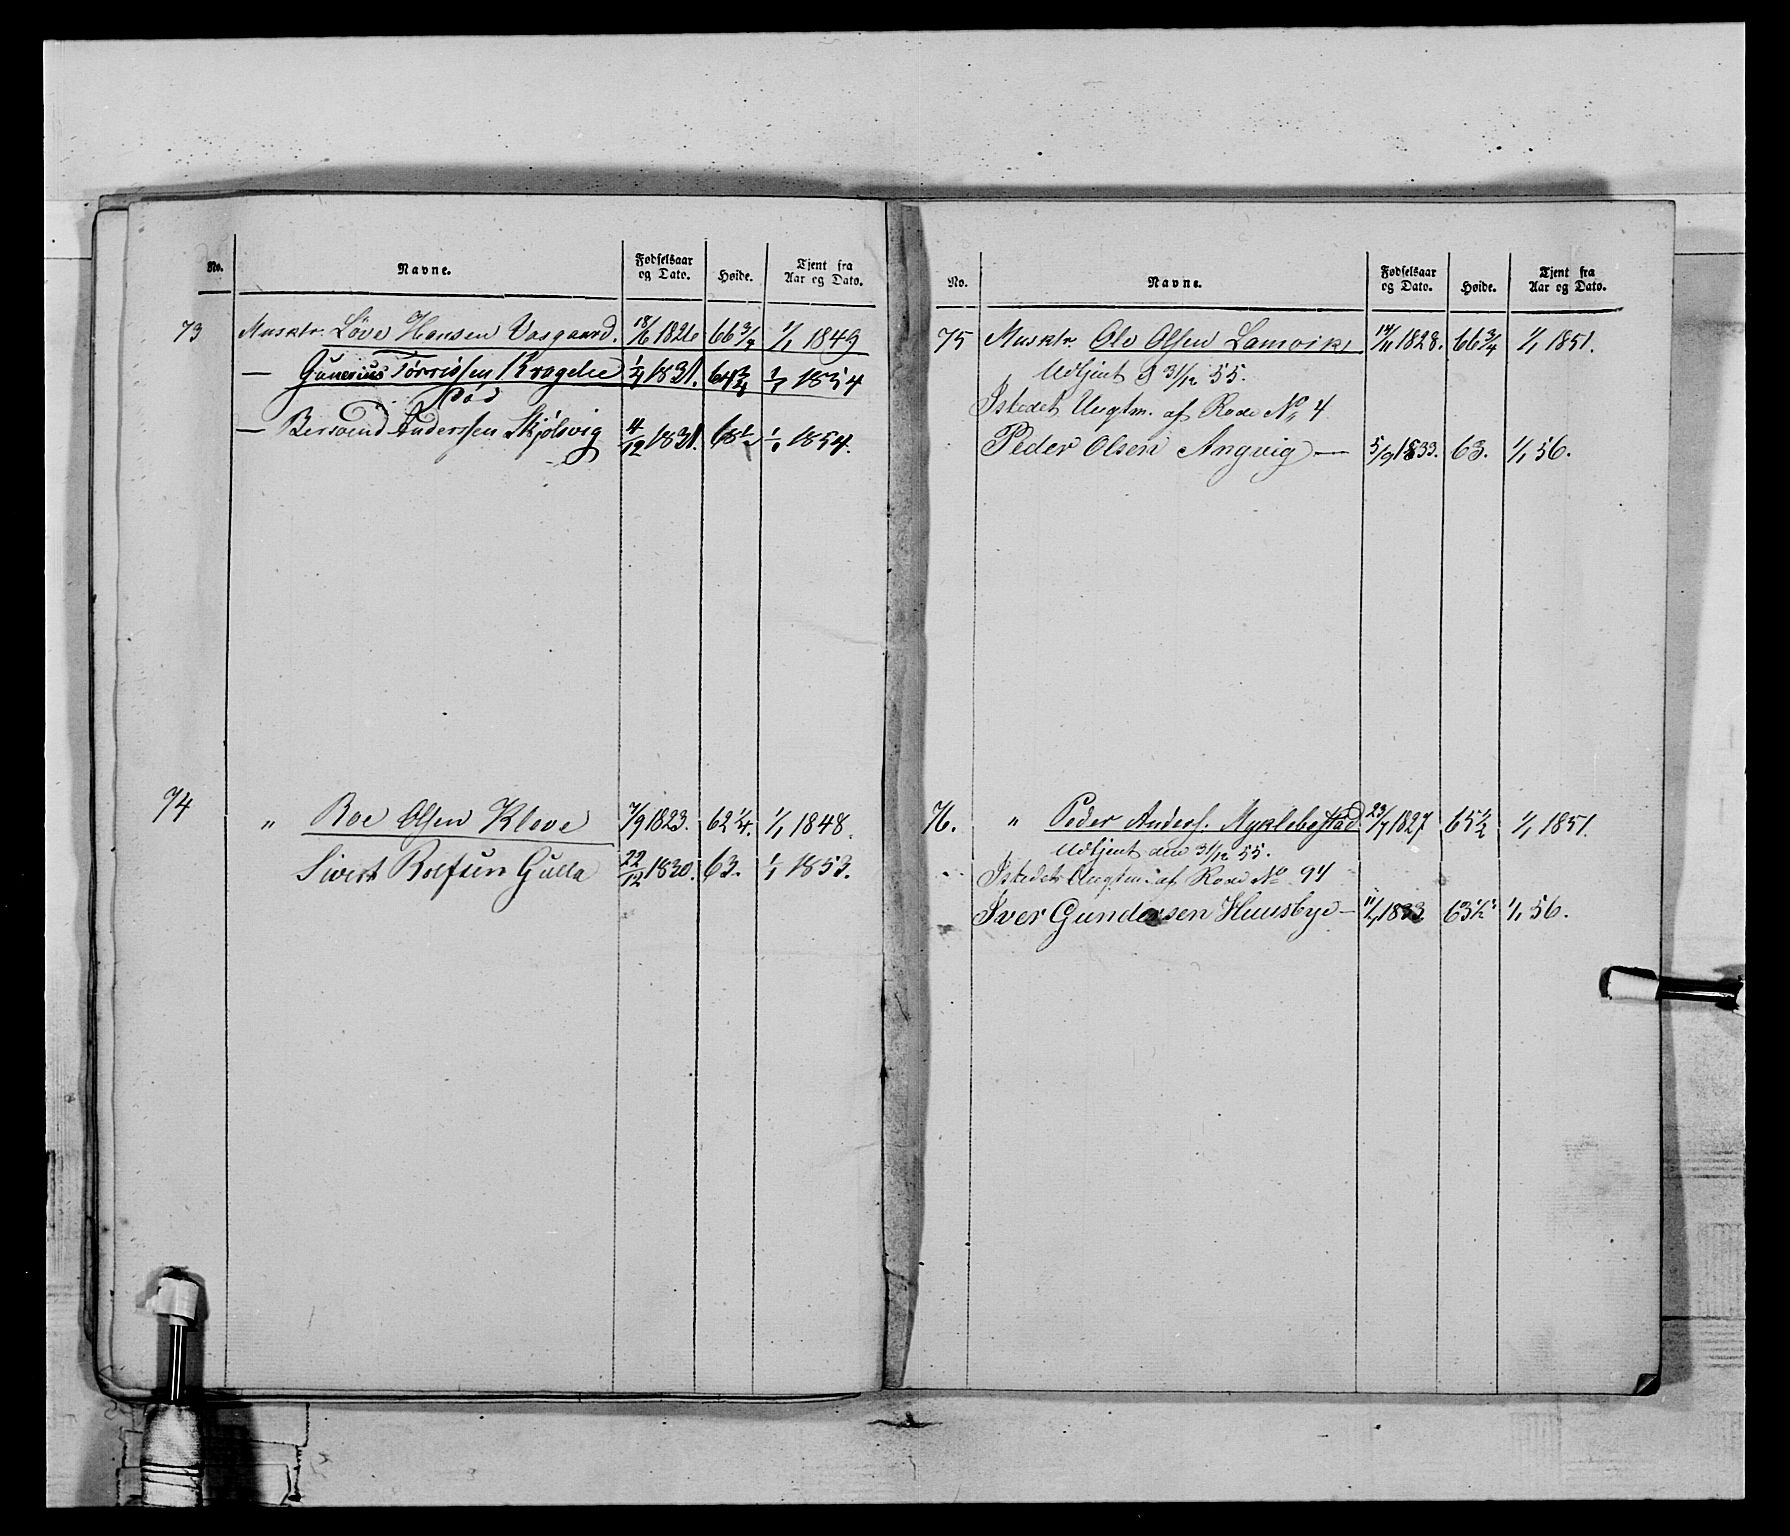 No. Navne. Fødselsaar og Dato. Høide. Tjent fra Aar og Dato.
73 Musktr. Löve Hansen Vasgaard. 18/6 1826 66 3/4 1/1 1849
— Gunerius Törrissen Kragelie 1/4 1831. 64 3/4 1/1 1854
Død
— Bersvend Anderssen Skjölsvig 4/12 1831. 1/1 1854.
74 " Roe Olsen Kleve 7/9 1823. 62 1/4. 1/1 1848.
Sivert Rolfsen Gulla 22/12 1830. 63. 1/1 1853.
No. Navne. Fødselsaar og Dato. Høide. Tjent fra Aar og Dato.
75 Musktr. Ole Olsen Lamvik 14/11 1828. 66 3/4 1/1 1851.
Udtjent d 31/12 55.
Istedet Ungtm. af Rode No 4
Peder Olsen Angvig — 5/9 1833. 63. 1/1 56.
76. " Peder Anders. Myklebostad 23/7 1827 65 1/2 1/1 1851.
Udtjent den 31/12 55.
Istedet Ungtm. af Rode No 94
Iver Gundersen Huusbye — 1833 63 1/2" 1/1 56.